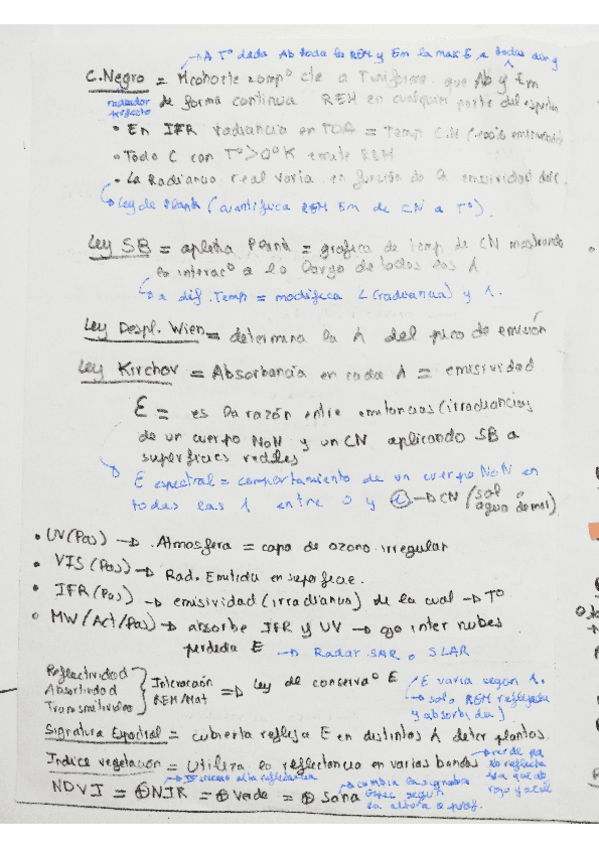 → A Tº dada Ab toda la REM y Em la max E a todas dir y λ
C. Negro = Mcohorte compº cte a T uniforme que Ab y Em
radiador perfecto
de forma continua REM en cualquier parte del espectro
• En IFR radiancia en TOA = Temp C.N (100% emisividad)
• Todo C con Tº > 0ºK emite REM
• La Radiancia real varia en función de la emisividad del C.
Ley de Plank (cuantifica REM Em de CN a Tº).
Ley SB = aplica Plank = grafica de temp de CN mostrando
la interacº a lo largo de todas las λ
a dif. Temp = modifica L (radiancia) y λ.
Ley Despl. Wien = determina la λ del pico de emisión
Ley Kirchov = Absorbancia en cada λ = emisividad
E = es la razón entre emitancias (irradiancias
de un cuerpo NoN y un CN aplicando SB a
superficies reales
E espectral = comportamiento de un cuerpo NoN en
todas las λ entre 0 y 1 → CN (sol o agua de mar)
• UV (Pas) → Atmosfera = capa de ozono irregular
• VIS (Pas) → Rad. Emitida en superficie.
• IFR (Pas) → emisividad (irradiancia) de la cual → Tº
• MW (Act/Pas) → absorbe IFR y UV → ojo inter nubes
perdida E → Radar SAR o SLAR
Reflectividad
Absortividad
Transmitividad
Interacción REM/Mat ⇒ Ley de conservaº E
E varia segun λ.
→ solo REM reflejada
y absorbida)
Signatura Espectral = cubierta refleja E en distintos λ deter plantas.
Indice vegetación = Utiliza la reflectancia en varias bandas
→ verde
xo reflecta
sea que ab
rojo y azul
NDVI = ⊕ NIR = ⊕ Verde = ⊕ Sana
alta reflectancia
→ cambia la signatura
espec segun
la altura o prof.